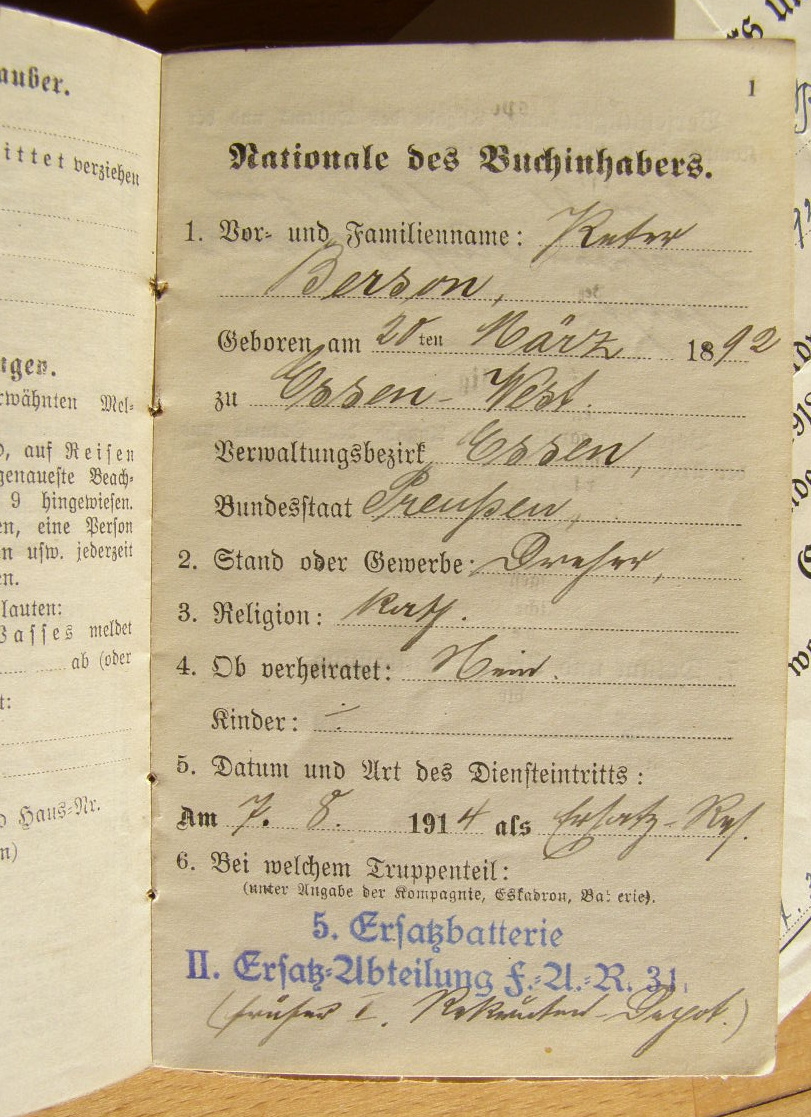 auber.
ittet verziehen
gen.
rwähnten Mel-
, auf Reisen
genaueste Beach-
9 hingewiesen.
en, eine Person
n usw. jederzeit
en.
lauten:
Passes meldet
ab (oder
t:
Haus-Nr.
n)
1
Nationale des Buchinhabers.
1. Vor- und Familienname: Peter
Berson,
Geboren am 20ten März 1892
zu Essen-West.
Verwaltungsbezirk Essen,
Bundesstaat Preußen,
2. Stand oder Gewerbe: Dreher,
3. Religion: kath.
4. Ob verheiratet: Nein.
Kinder: ÷
5. Datum und Art des Diensteintritts:
Am 7. 8. 1914 als Ersatz-Res.
6. Bei welchem Truppenteil:
(unter Angabe der Kompagnie, Eskadron, Batterie).
5. Ersatzbatterie
II. Ersatz-Abteilung F.-A.-R. 31.
(früher I. Rekruten-Depot.)